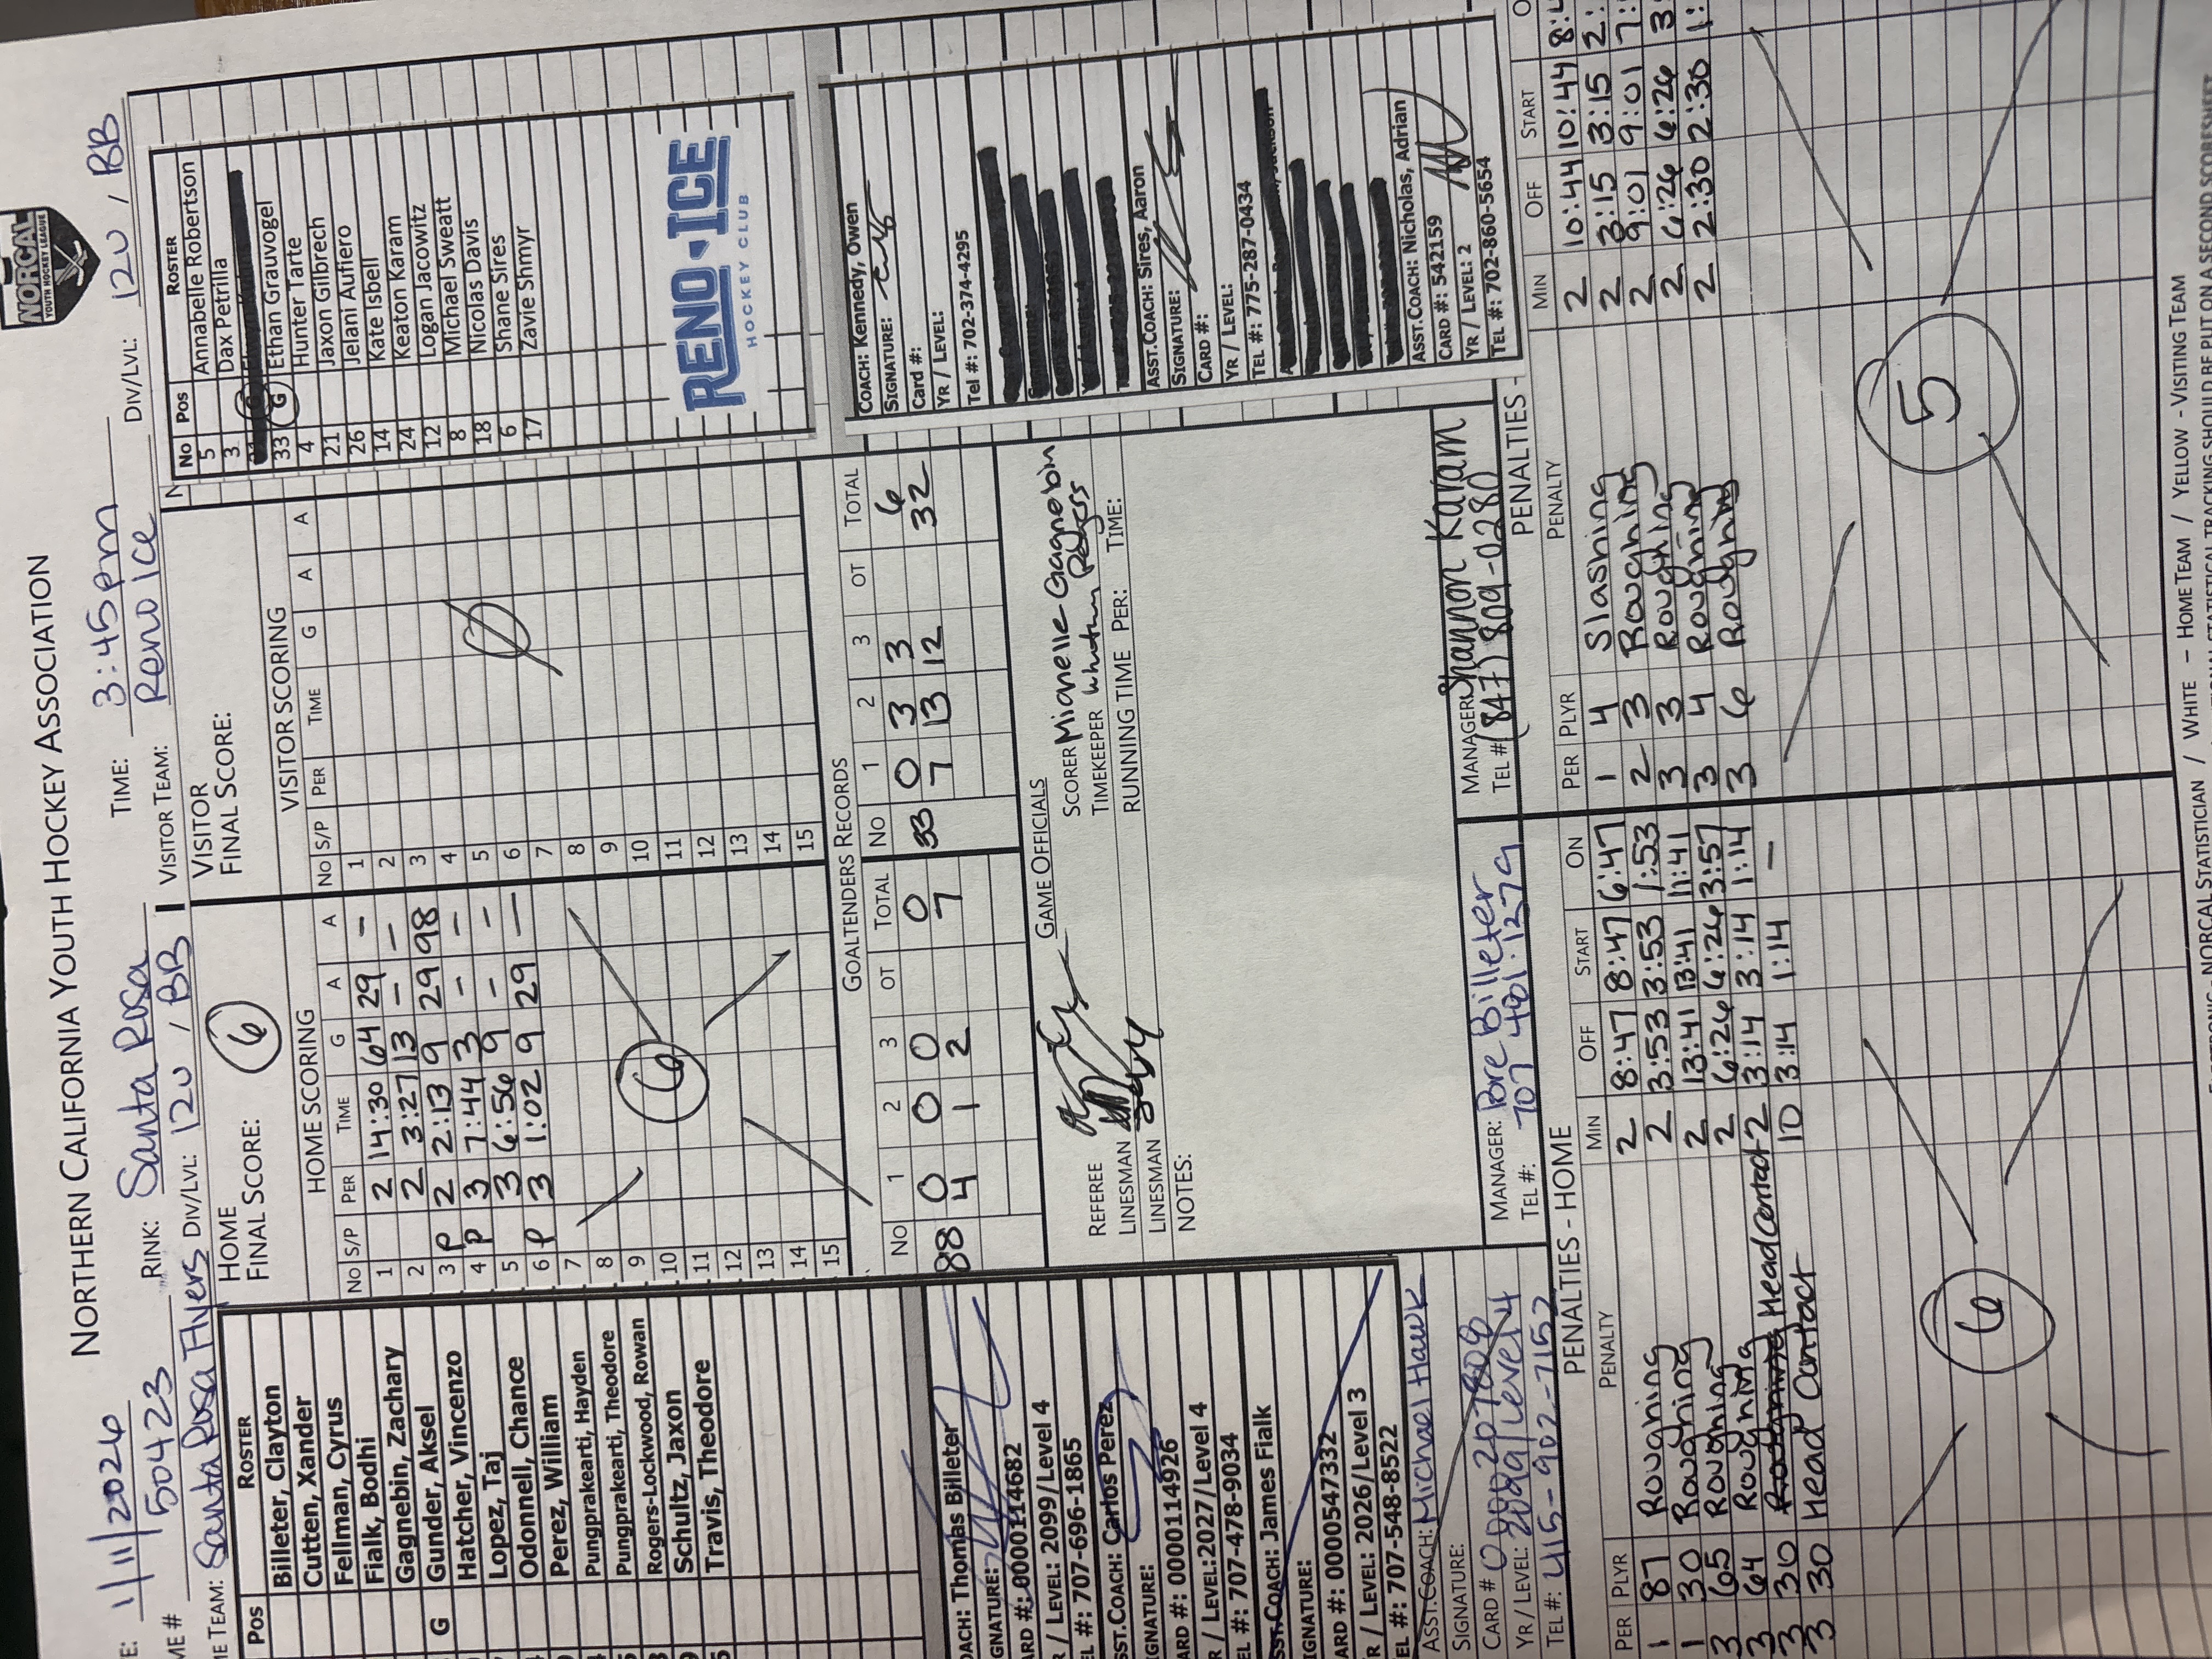 NORCAL
YOUTH HOCKEY LEAGUE
NORTHERN CALIFORNIA YOUTH HOCKEY ASSOCIATION
E: 1/11/2026 RINK: Santa Rosa TIME: 3:45pm DIV/LVL: 12U / BB
ME # 50423
ME TEAM: Santa Rosa Flyers DIV/LVL: 12U / BB VISITOR TEAM: Reno Ice
Pos ROSTER
Billeter, Clayton
Cutten, Xander
Fellman, Cyrus
Fialk, Bodhi
Gagnebin, Zachary
G Gunder, Aksel
Hatcher, Vincenzo
Lopez, Taj
Odonnell, Chance
Perez, William
Pungprakearti, Hayden
Pungprakearti, Theodore
Rogers-Lockwood, Rowan
Schultz, Jaxon
Travis, Theodore
HOME
FINAL SCORE: 6
HOME SCORING
No S/P PER TIME G A A
1 2 14:30 64 29 -
2 2 3:27 13 - -
3 P 2 2:13 9 29 98
4 P 3 7:44 3 - -
5 3 6:56 9 - -
6 P 3 1:02 9 29 -
7
8
9
10
11
12
13
14
15
6
VISITOR
FINAL SCORE:
VISITOR SCORING
No S/P PER TIME G A A
1
2
3
4
5
6
7
8
9
10
11
12
13
14
15
No Pos ROSTER
5 Annabelle Robertson
3 Dax Petrilla
33 G Ethan Grauvogel
4 Hunter Tarte
21 Jaxon Gilbrech
26 Jelani Aufiero
14 Kate Isbell
24 Keaton Karam
12 Logan Jacowitz
8 Michael Sweatt
18 Nicolas Davis
6 Shane Sires
17 Zavie Shmyr
RENO ICE
HOCKEY CLUB
GOALTENDERS RECORDS
No 1 2 3 OT TOTAL No 1 2 3 OT TOTAL
88 0 0 0 0 33 0 3 3 6
4 1 2 7 7 13 12 32
OACH: Thomas Billeter
IGNATURE:
ARD #: 0000114682
R / LEVEL: 2099/Level 4
EL #: 707-696-1865
SST.COACH: Carlos Perez
IGNATURE:
ARD #: 00001114926
R / LEVEL:2027/Level 4
EL #: 707-478-9034
SST.COACH: James Fialk
IGNATURE:
ARD #: 0000547332
R / LEVEL: 2026/Level 3
EL #: 707-548-8522
ASST.COACH: Michael Hawk
SIGNATURE:
CARD #
YR / LEVEL: Level 4
TEL #: 415-902-7152
GAME OFFICIALS
REFEREE
LINESMAN
LINESMAN
NOTES:
SCORER Mianelle Gagnebin
TIMEKEEPER
RUNNING TIME PER: TIME:
COACH: Kennedy, Owen
SIGNATURE:
Card #:
YR / LEVEL:
Tel #: 702-374-4295
ASST.COACH: Sires, Aaron
SIGNATURE:
CARD #:
YR / LEVEL:
TEL #: 775-287-0434
ASST.COACH: Nicholas, Adrian
CARD #: 542159
YR / LEVEL: 2
TEL #: 702-860-5654
MANAGER: Billeter
TEL #: 707 481.1279
MANAGER: Shannon Karam
TEL # (847) 809-0280
PENALTIES - HOME
PER PLYR PENALTY MIN OFF START ON
1 87 Roughing 2 8:47 8:47 6:47
1 30 Roughing 2 3:53 3:53 1:53
3 65 Roughing 2 13:41 13:41 11:41
3 64 Roughing 2 6:26 6:26 3:57
3 30 Roughing Head Contact 2 3:14 3:14 1:14
3 30 Head Contact 10 3:14 1:14 -
6
PENALTIES -
PER PLYR PENALTY MIN OFF START O
1 4 Slashing 2 10:44 10:44 8:4
2 3 Roughing 2 3:15 3:15 2:
3 3 Roughing 2 9:01 9:01 7:
3 4 Roughing 2 6:26 6:26 3:
3 6 Roughing 2 2:30 2:30 1:
5
NORCAL STATISTICIAN / WHITE – HOME TEAM / YELLOW - VISITING TEAM
STATISTICAL TRACKING SHOULD BE PUT ON A SECOND SCORESHEET